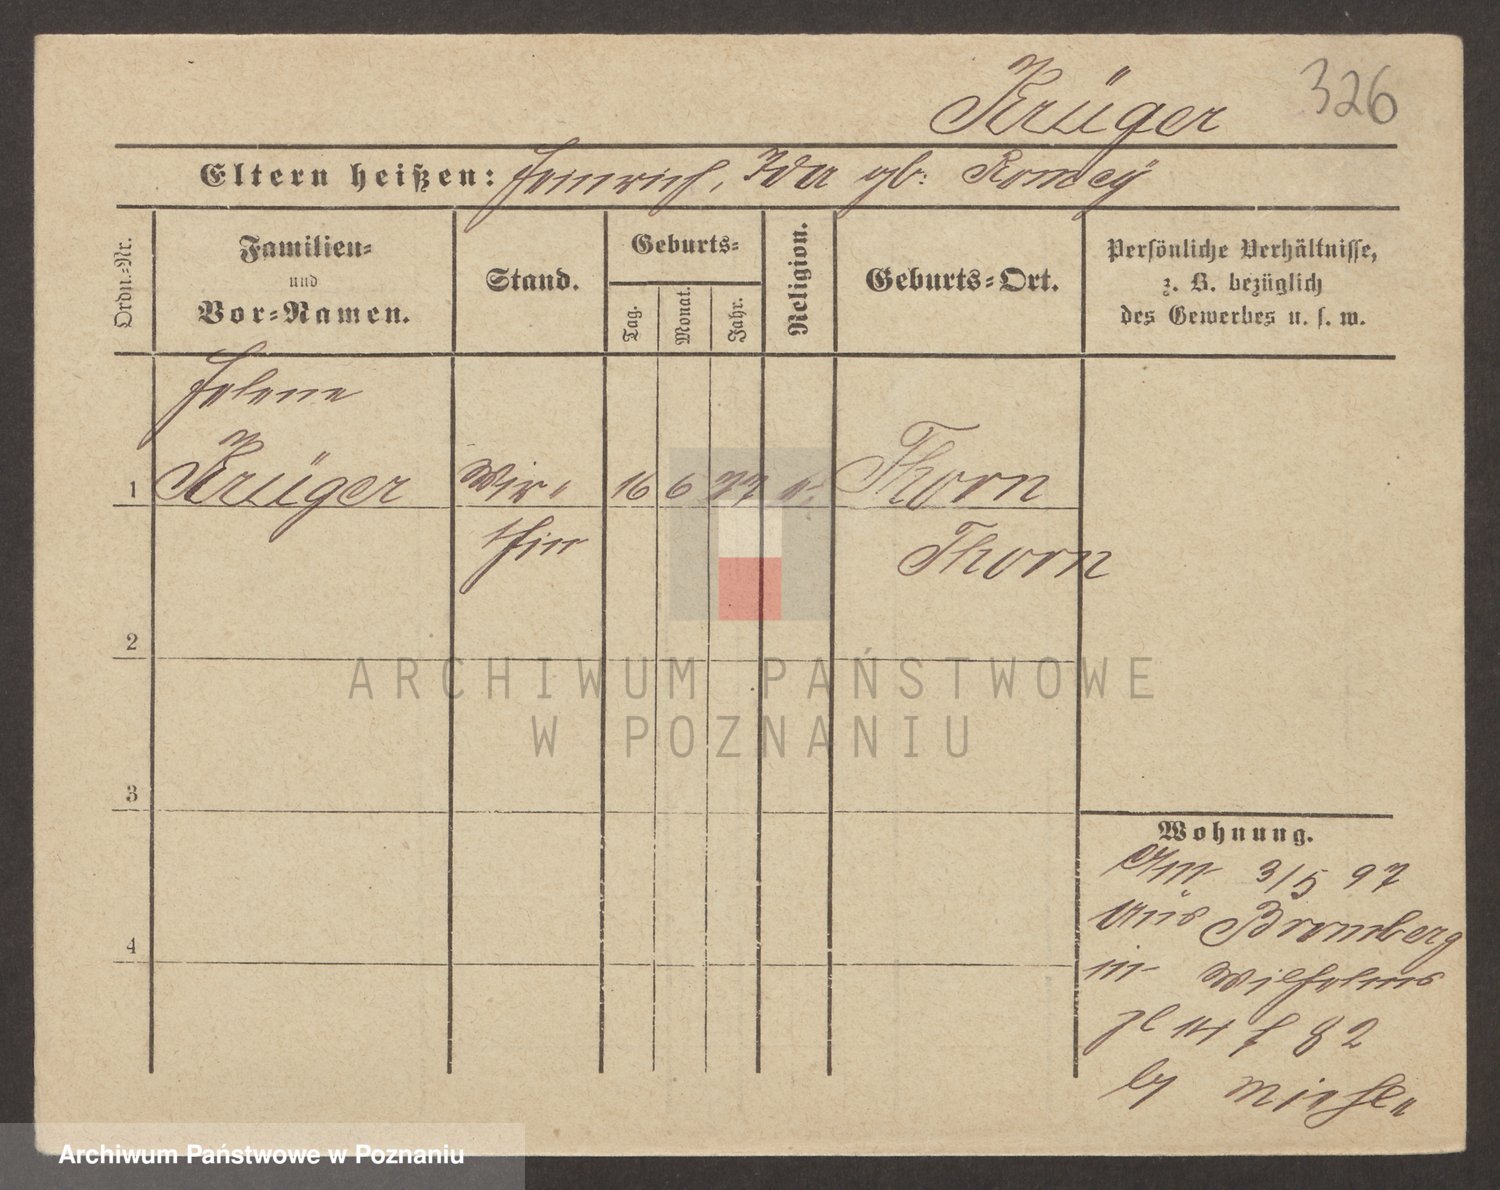 Krüger 326
Eltern heißen: Heinrich, Ida gb: Romey
Ordn.=Nr.
Familien=
und
Vor=Namen.
Stand.
Geburts=
Tag.
Monat.
Jahr.
Religion.
Geburts=Ort.
Persönliche Verhältnisse,
z. B. bezüglich
des Gewerbes u. s. w.
Helene
1 Krüger Wir= 16 6 77 Thorn
thin Thorn
2
3
4
Wohnung.
3/5 97
Aus Bromberg
in Wilhelms
pl 14
by
ARCHIWUM PAŃSTWOWE
W POZNANIU
Archiwum Państwowe w Poznaniu